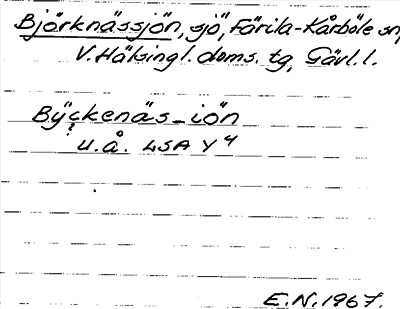 Björknässjön, sjö, Färila-Kårböle sn,
V. Hälsingl. doms. tg, Gävl. l.
Byckenäs-iön
U.å. LSA Y 4
E.N. 1967.